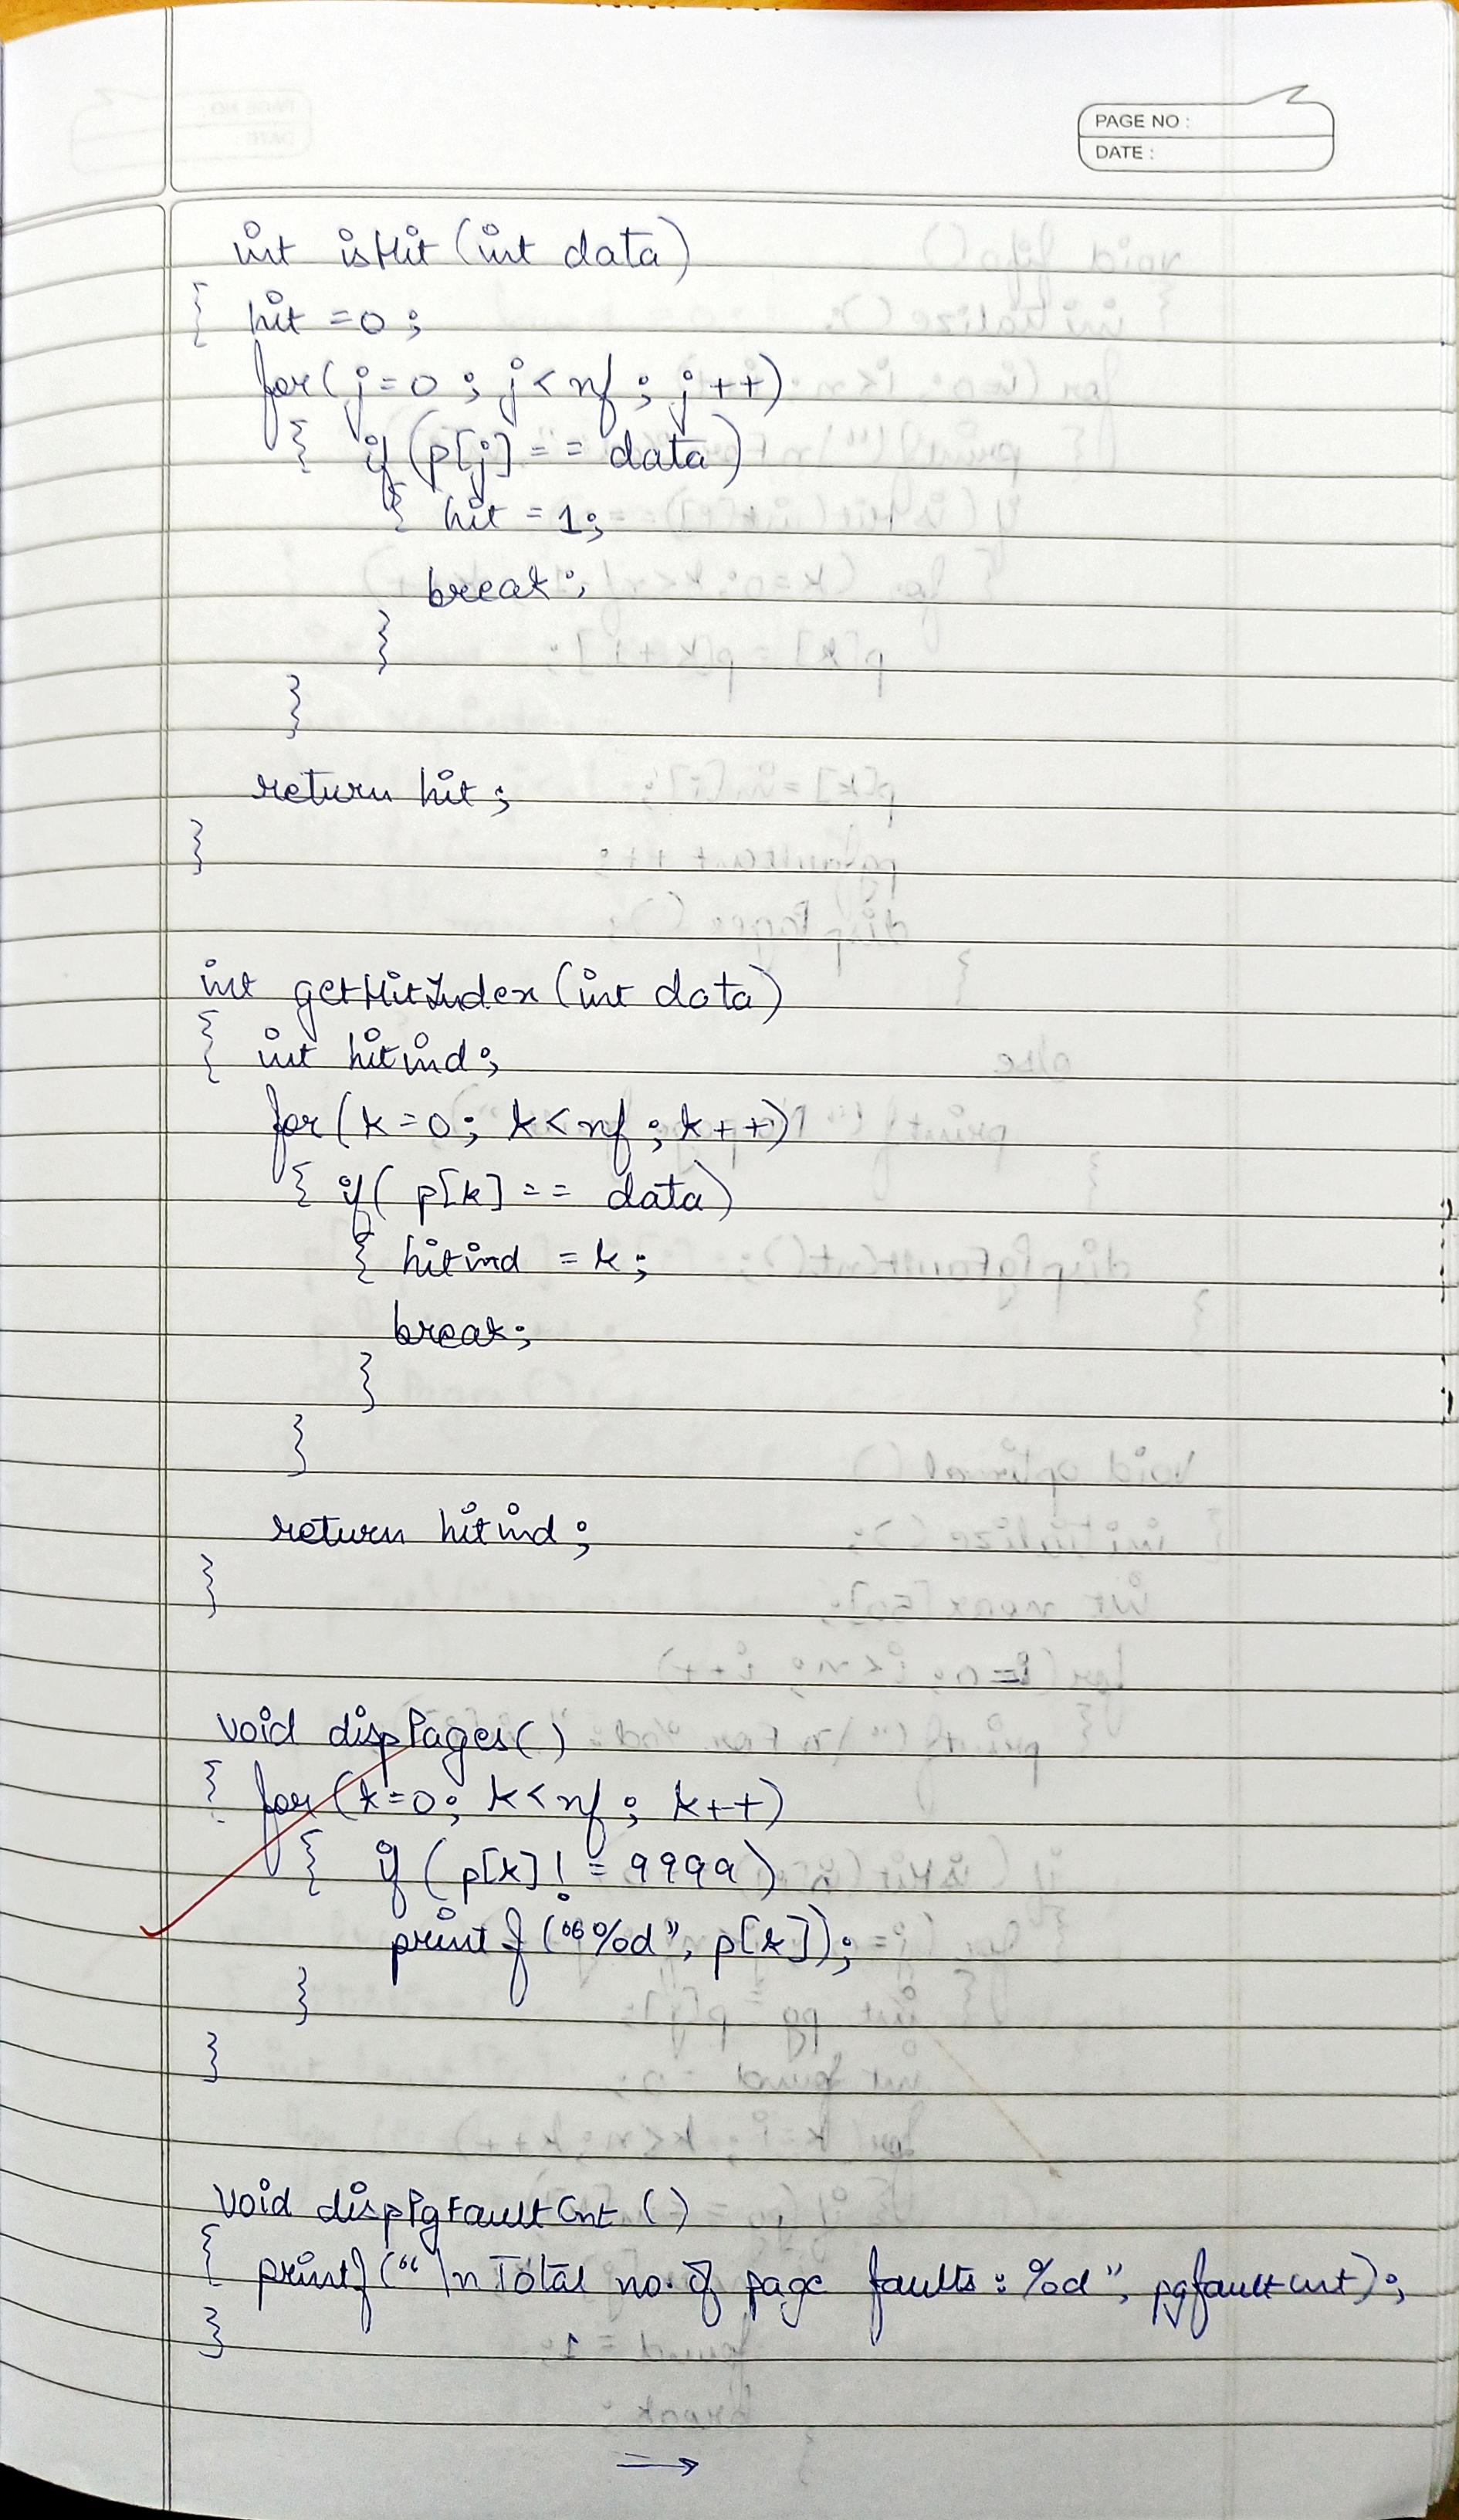 PAGE NO :
DATE :
int isHit (int data)
{ hit = 0 ;
for( j = 0 ; j < nf ; j ++)
{ if (p[j] = = data)
{ hit = 1;
break ;
}
}
return hit ;
}
int getHitIndex (int data)
{ int hitind ;
for (k = 0 ; k < nf ; k ++)
{ if( p[k] == data)
{ hitind = k ;
break ;
}
}
return hitind ;
}
void dispPages ( )
{ for (k=0; k < nf ; k++)
{ if ( p[k] ! = 9999)
printf ("%d", p[k]);
}
}
void dispPgFaultCnt ( )
{ printf ("\n Total no. of page faults : %d", pgfaultcnt) ;
}
→